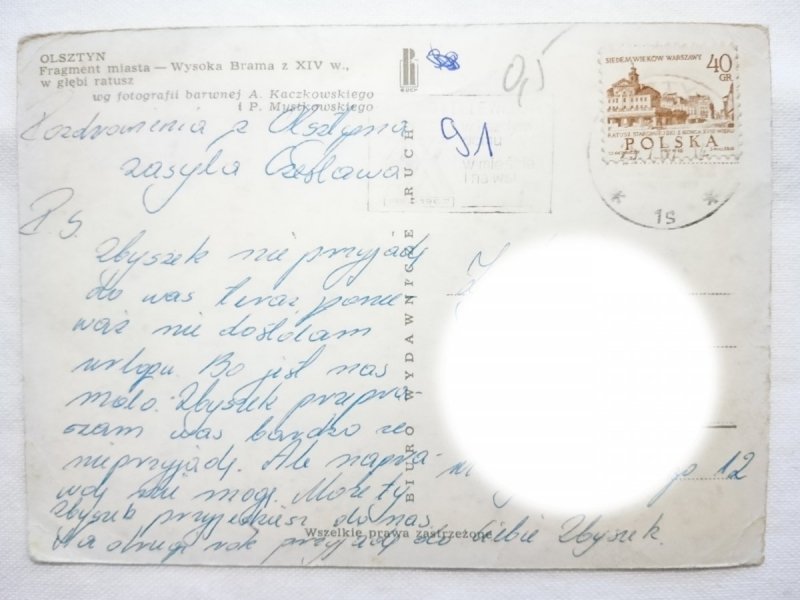 OLSZTYN
Fragment miasta — Wysoka Brama z XIV w.,
w głębi ratusz
wg fotografii barwnej A. Kaczkowskiego
i P. Mystkowskiego
RUCH
0,5
91
SIEDEM WIEKÓW WARSZAWY
40
GR
POLSKA
1s
Pozdrowienia z Olsztyna
zasyła Czesława
PS.
Zbyszek nie przyjadę
do was teraz ponie
waż nie dostałam
urlopu. Bo jest nas
mało. Zbyszek przepra
szam was bardzo że
nie przyjadę. Ale napra-
wdę nie mogę. Może ty
Zbyszek przyjedziesz do nas.
Na drugi rok przyjadę do Ciebie Zbyszek.
BIURO WYDAWNICZE „RUCH"
12
Wszelkie prawa zastrzeżone